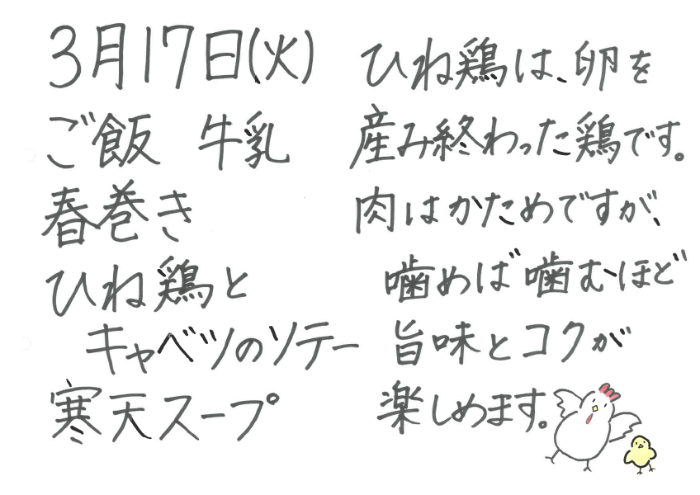 3月17日(火)
ご飯 牛乳
春巻き
ひね鶏と
キャベツのソテー
寒天スープ
ひね鶏は、卵を
産み終わった鶏です。
肉はかためですが、
噛めば噛むほど
旨味とコクが
楽しめます。